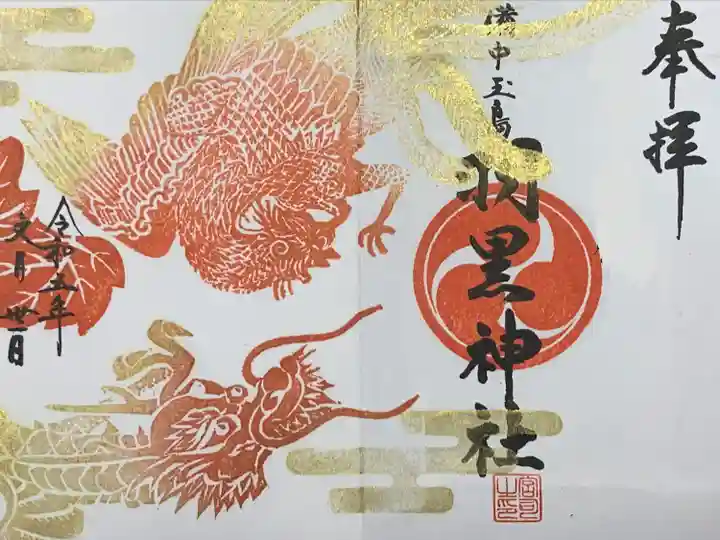 奉拝
備中玉島
羽黒神社
宮司之印
令和五年
文月丗一日